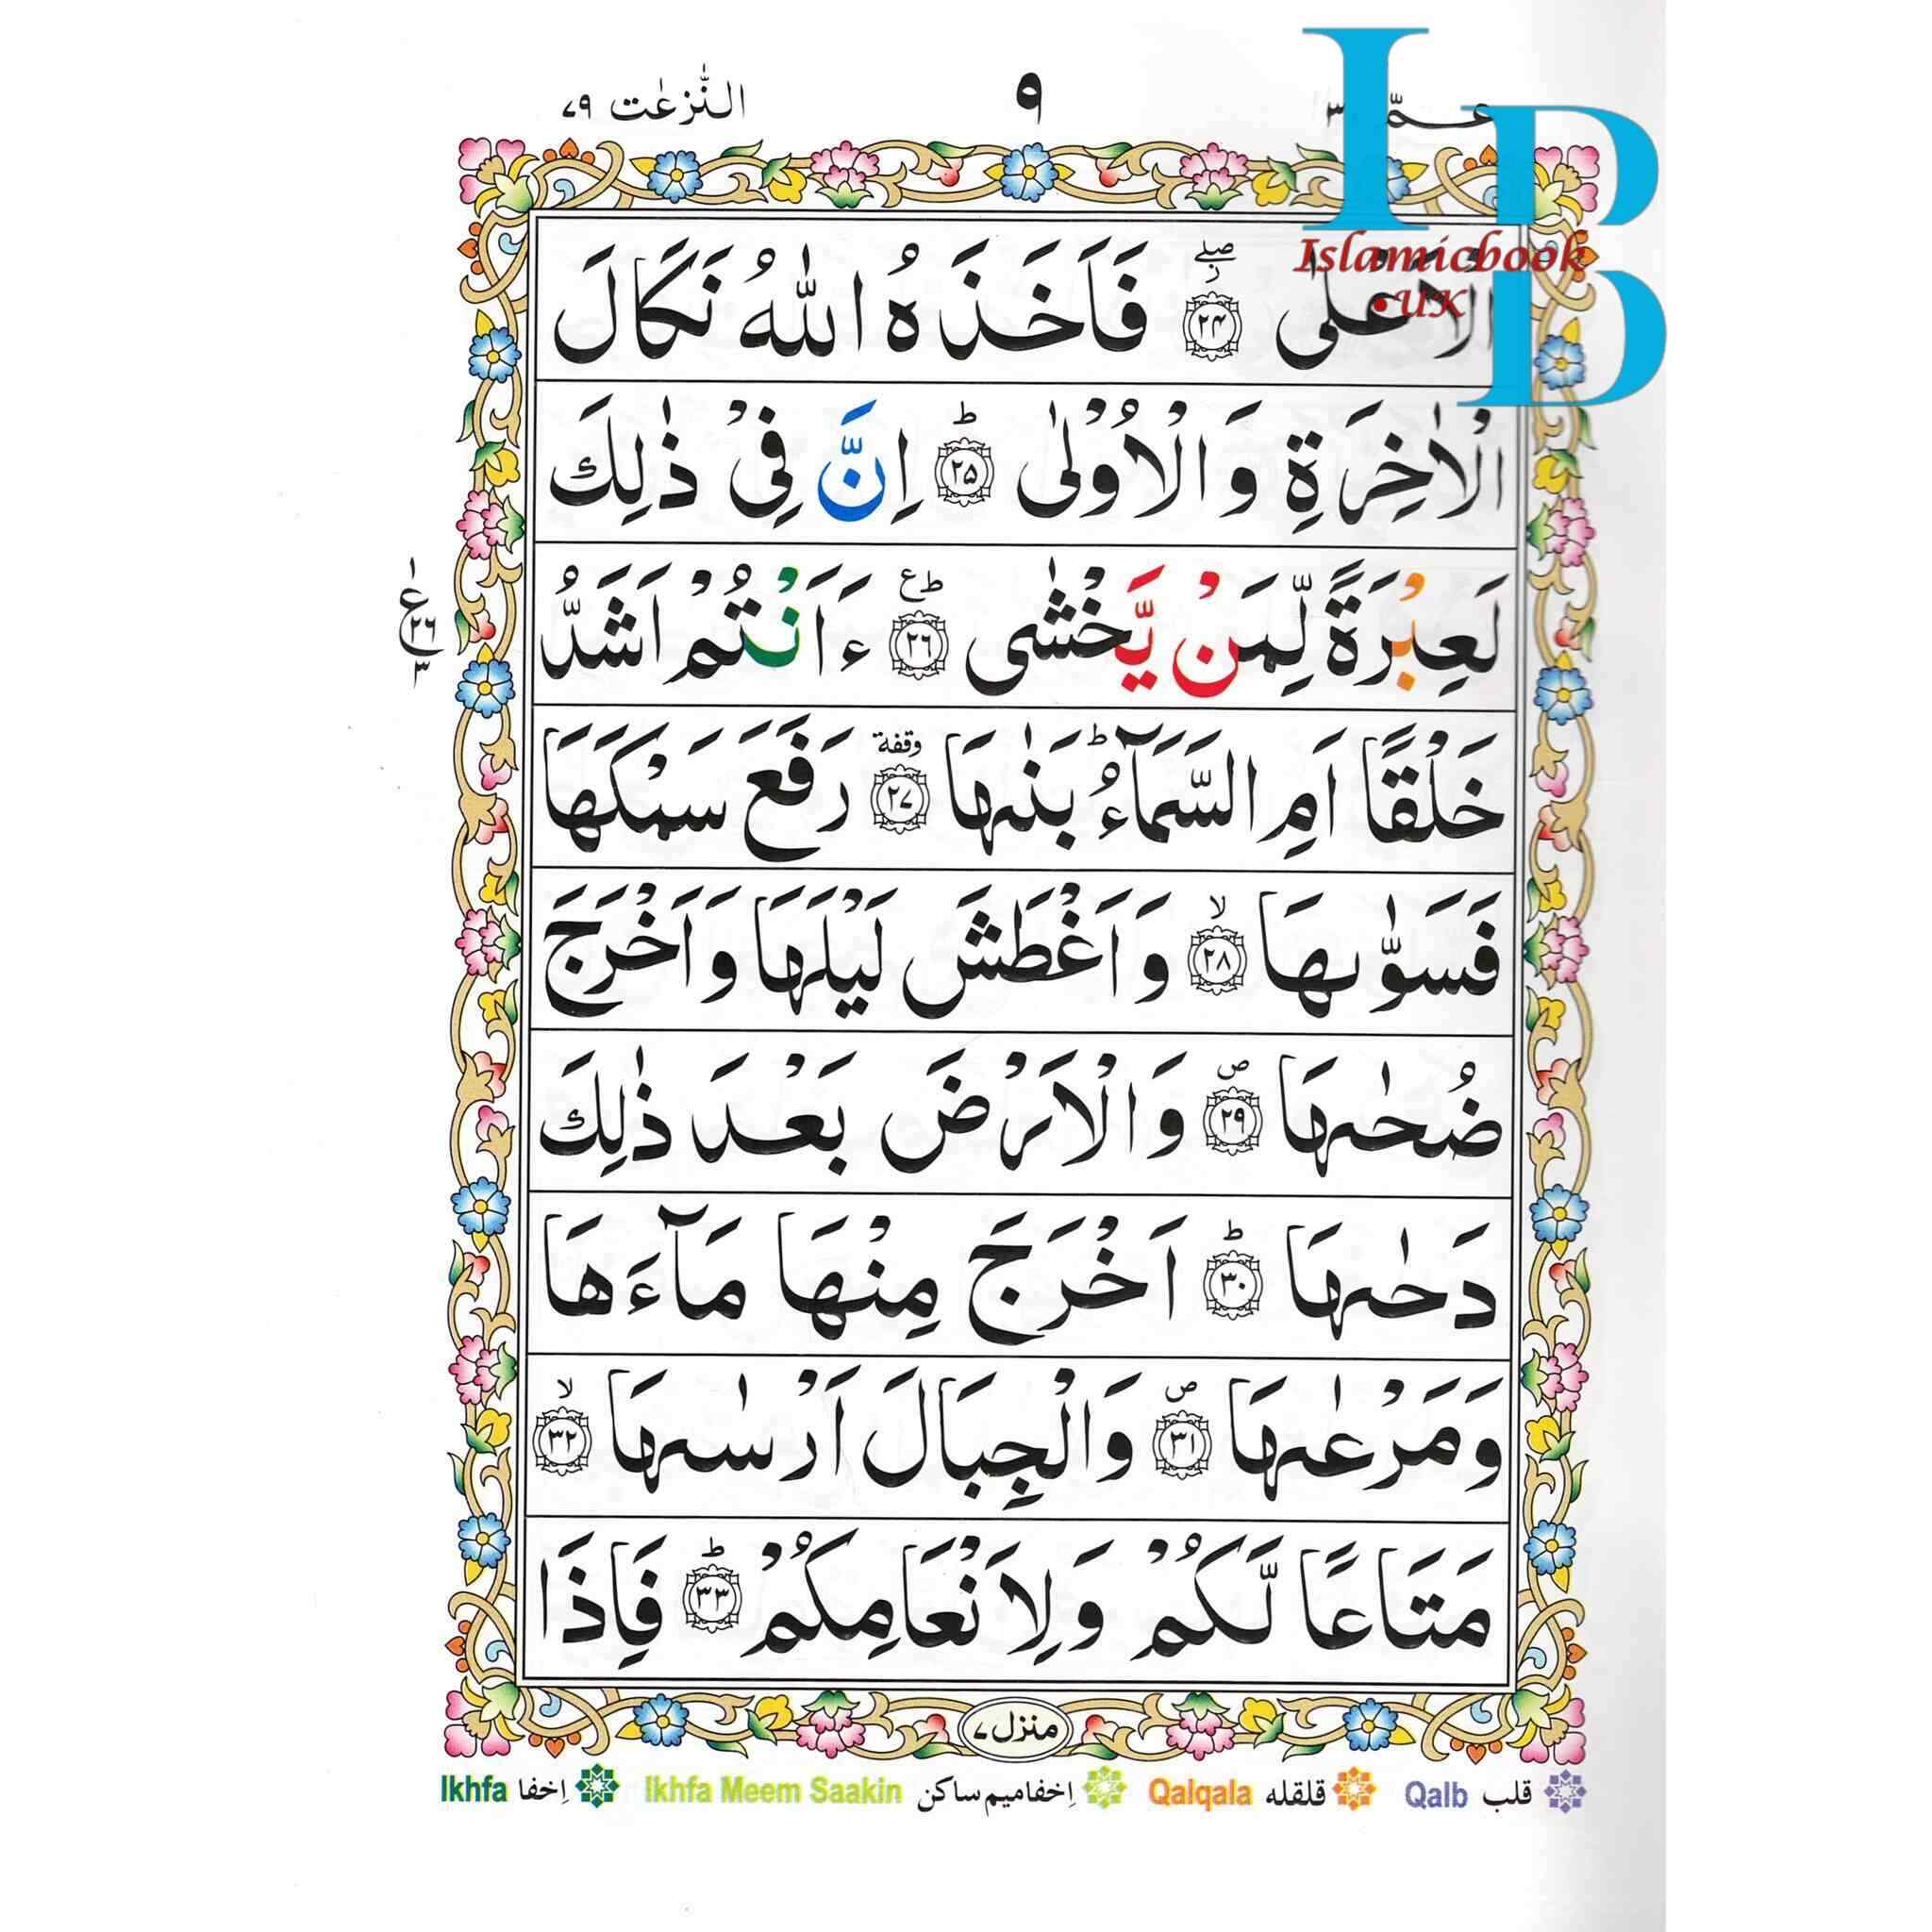 النّٰزعٰت ٧٩ ٩ عمّ ٣
Islamicbook
.UK
الْاَعْلٰى ۟ۖ ﴿٢٤﴾ فَاَخَذَهُ اللّٰهُ نَكَالَ
الْاٰخِرَةِ وَالْاُوْلٰى ؕ﴿٢٥﴾ اِنَّ فِيْ ذٰلِكَ
لَعِبْرَةً لِّمَنْ يَّخْشٰى ؕع ﴿٢٦﴾ ءَاَنْتُمْ اَشَدُّ
ع ٢٦ ٣
خَلْقًا اَمِ السَّمَآءُ ؕ بَنٰىهَا وقفة ﴿٢٧﴾ رَفَعَ سَمْكَهَا
فَسَوّٰىهَا ۙ﴿٢٨﴾ وَاَغْطَشَ لَيْلَهَا وَاَخْرَجَ
ضُحٰىهَا ص ﴿٢٩﴾ وَالْاَرْضَ بَعْدَ ذٰلِكَ
دَحٰىهَا ؕ﴿٣٠﴾ اَخْرَجَ مِنْهَا مَآءَهَا
وَمَرْعٰىهَا ص ﴿٣١﴾ وَالْجِبَالَ اَرْسٰىهَا ۙ﴿٣٢﴾
مَتَاعًا لَّكُمْ وَلِاَنْعَامِكُمْ ؕ﴿٣٣﴾ فَاِذَا
منزل ٧
Qalb قلب Qalqala قلقله Ikhfa Meem Saakin اِخفا میم ساکن Ikhfa اِخفا